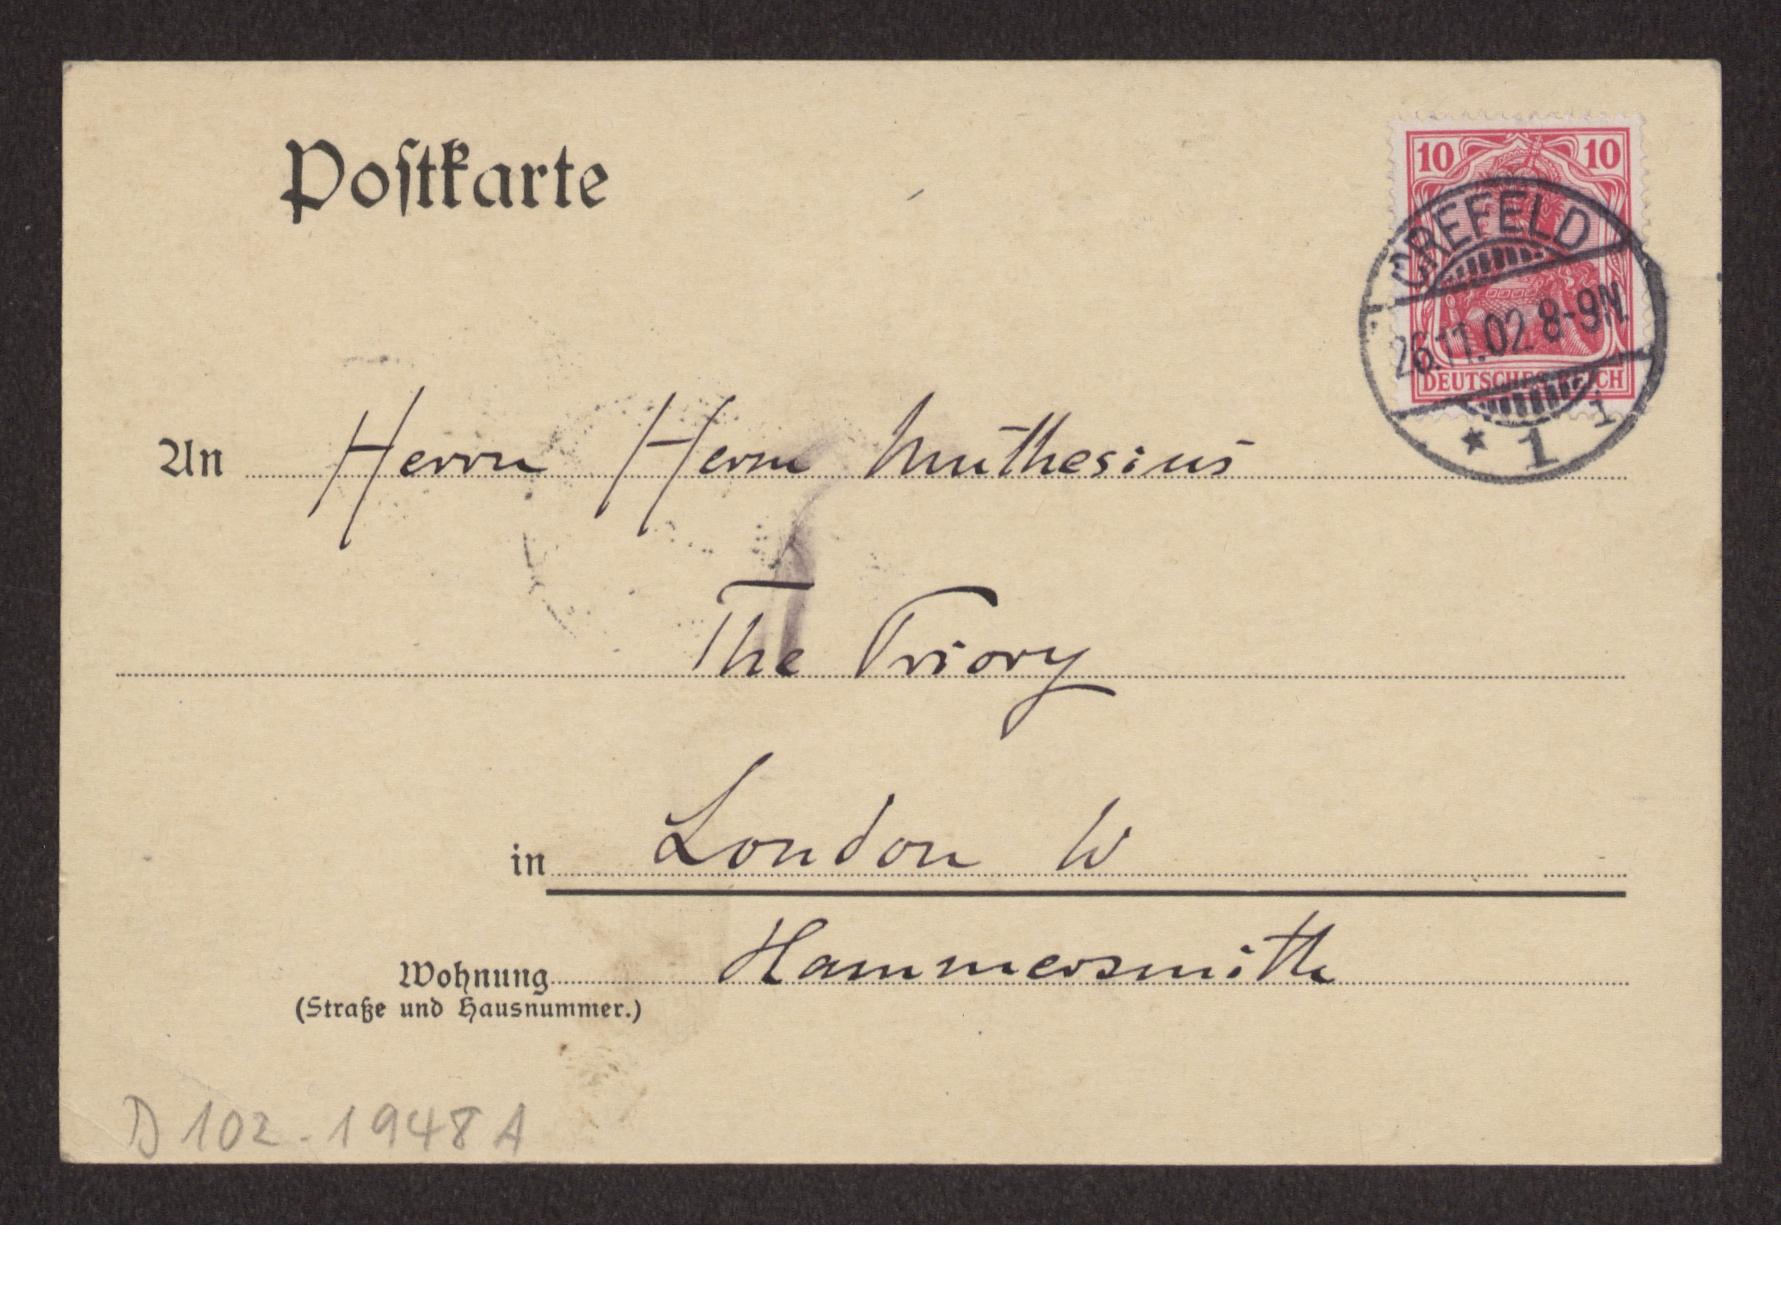 Postkarte
10 10
CREFELD
26.11.02. 8-9N.
DEUTSCHES REICH
* 1 i
An Herrn Herm Muthesius
The Priory
in London W
Hammersmith
Wohnung
(Straße und Hausnummer.)
D 102-1948 A